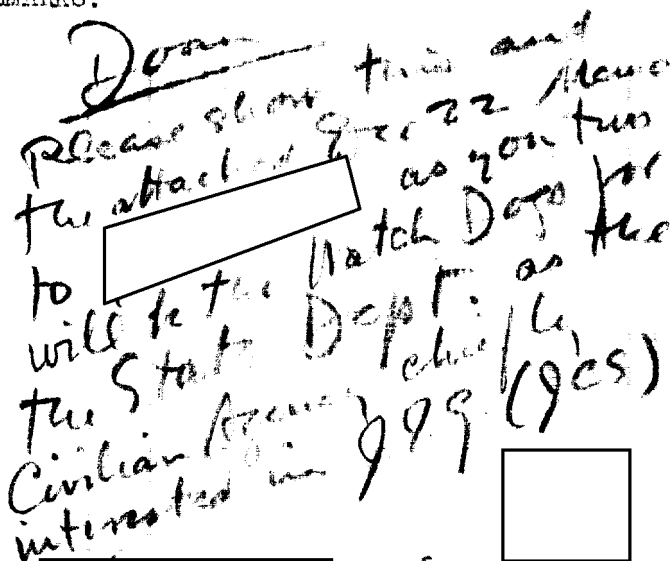 Don
please show this and
the attached Dec 22 Memo
to as you two
will be the Watch Dogs for
the State Dept. as the
Civilian Agency chiefly
interested in 999 (JCS)